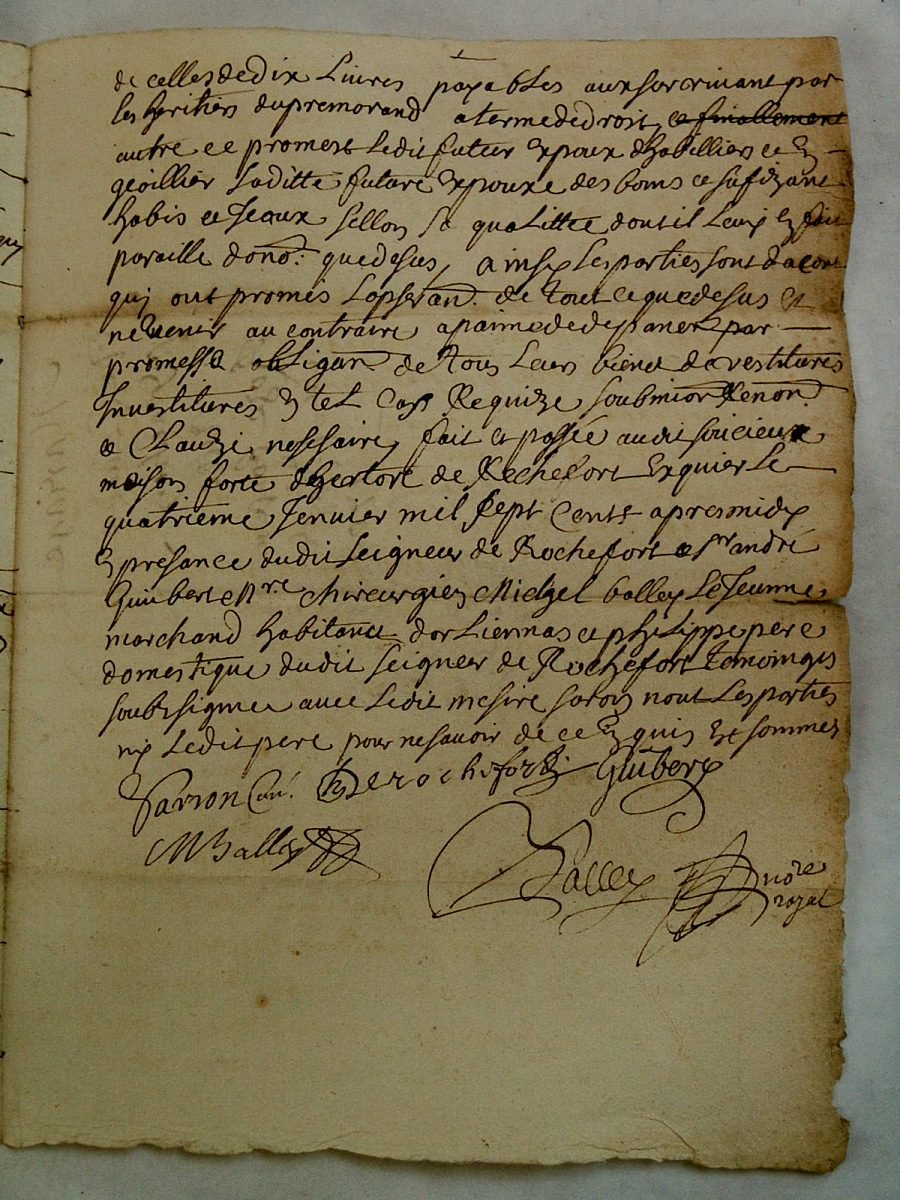 de celles de dix Livres payables au survivant par
les heritiers du premorand a terme de droit, et finallement
autre ce promest Ledit futeur Expoux dhabillier et En
geoillier Laditte future Expouxe des bons et sufizant
habis et Jeaux sellon sa qualittee dont il Luy En fait
paraille dono.n quedesus, ainsy Les parties sont dacort
quj ont promis Lopservan. de tout ce que desus Et
ne venir au contraire a paine de despaner par
promesse obligan de tous Leurs biens devestitures
Investitures En tel Cas Requize soubmion Renon.
& Clauze nescsaire, fait et passée audit
maison forte de Rochefort Exquier Le
quatrieme Jenvier mil sept Cents apres midy
En presance dudit Seigneur de Rochefort & sr andré
Guibert Mre. chirurgien Michel balley Le Jeunne
marchand habitant dorLiennas et philippe pere
domestique dudit seigneur de Rochefort Temoingts
soubz signer avec Ledit mesire nont Les parties
ny Ledit pere pour ne savoir de ce Enquis Et sommer
Parron Curé. De rochefort Guibert
M Balley
Balley nore
royal